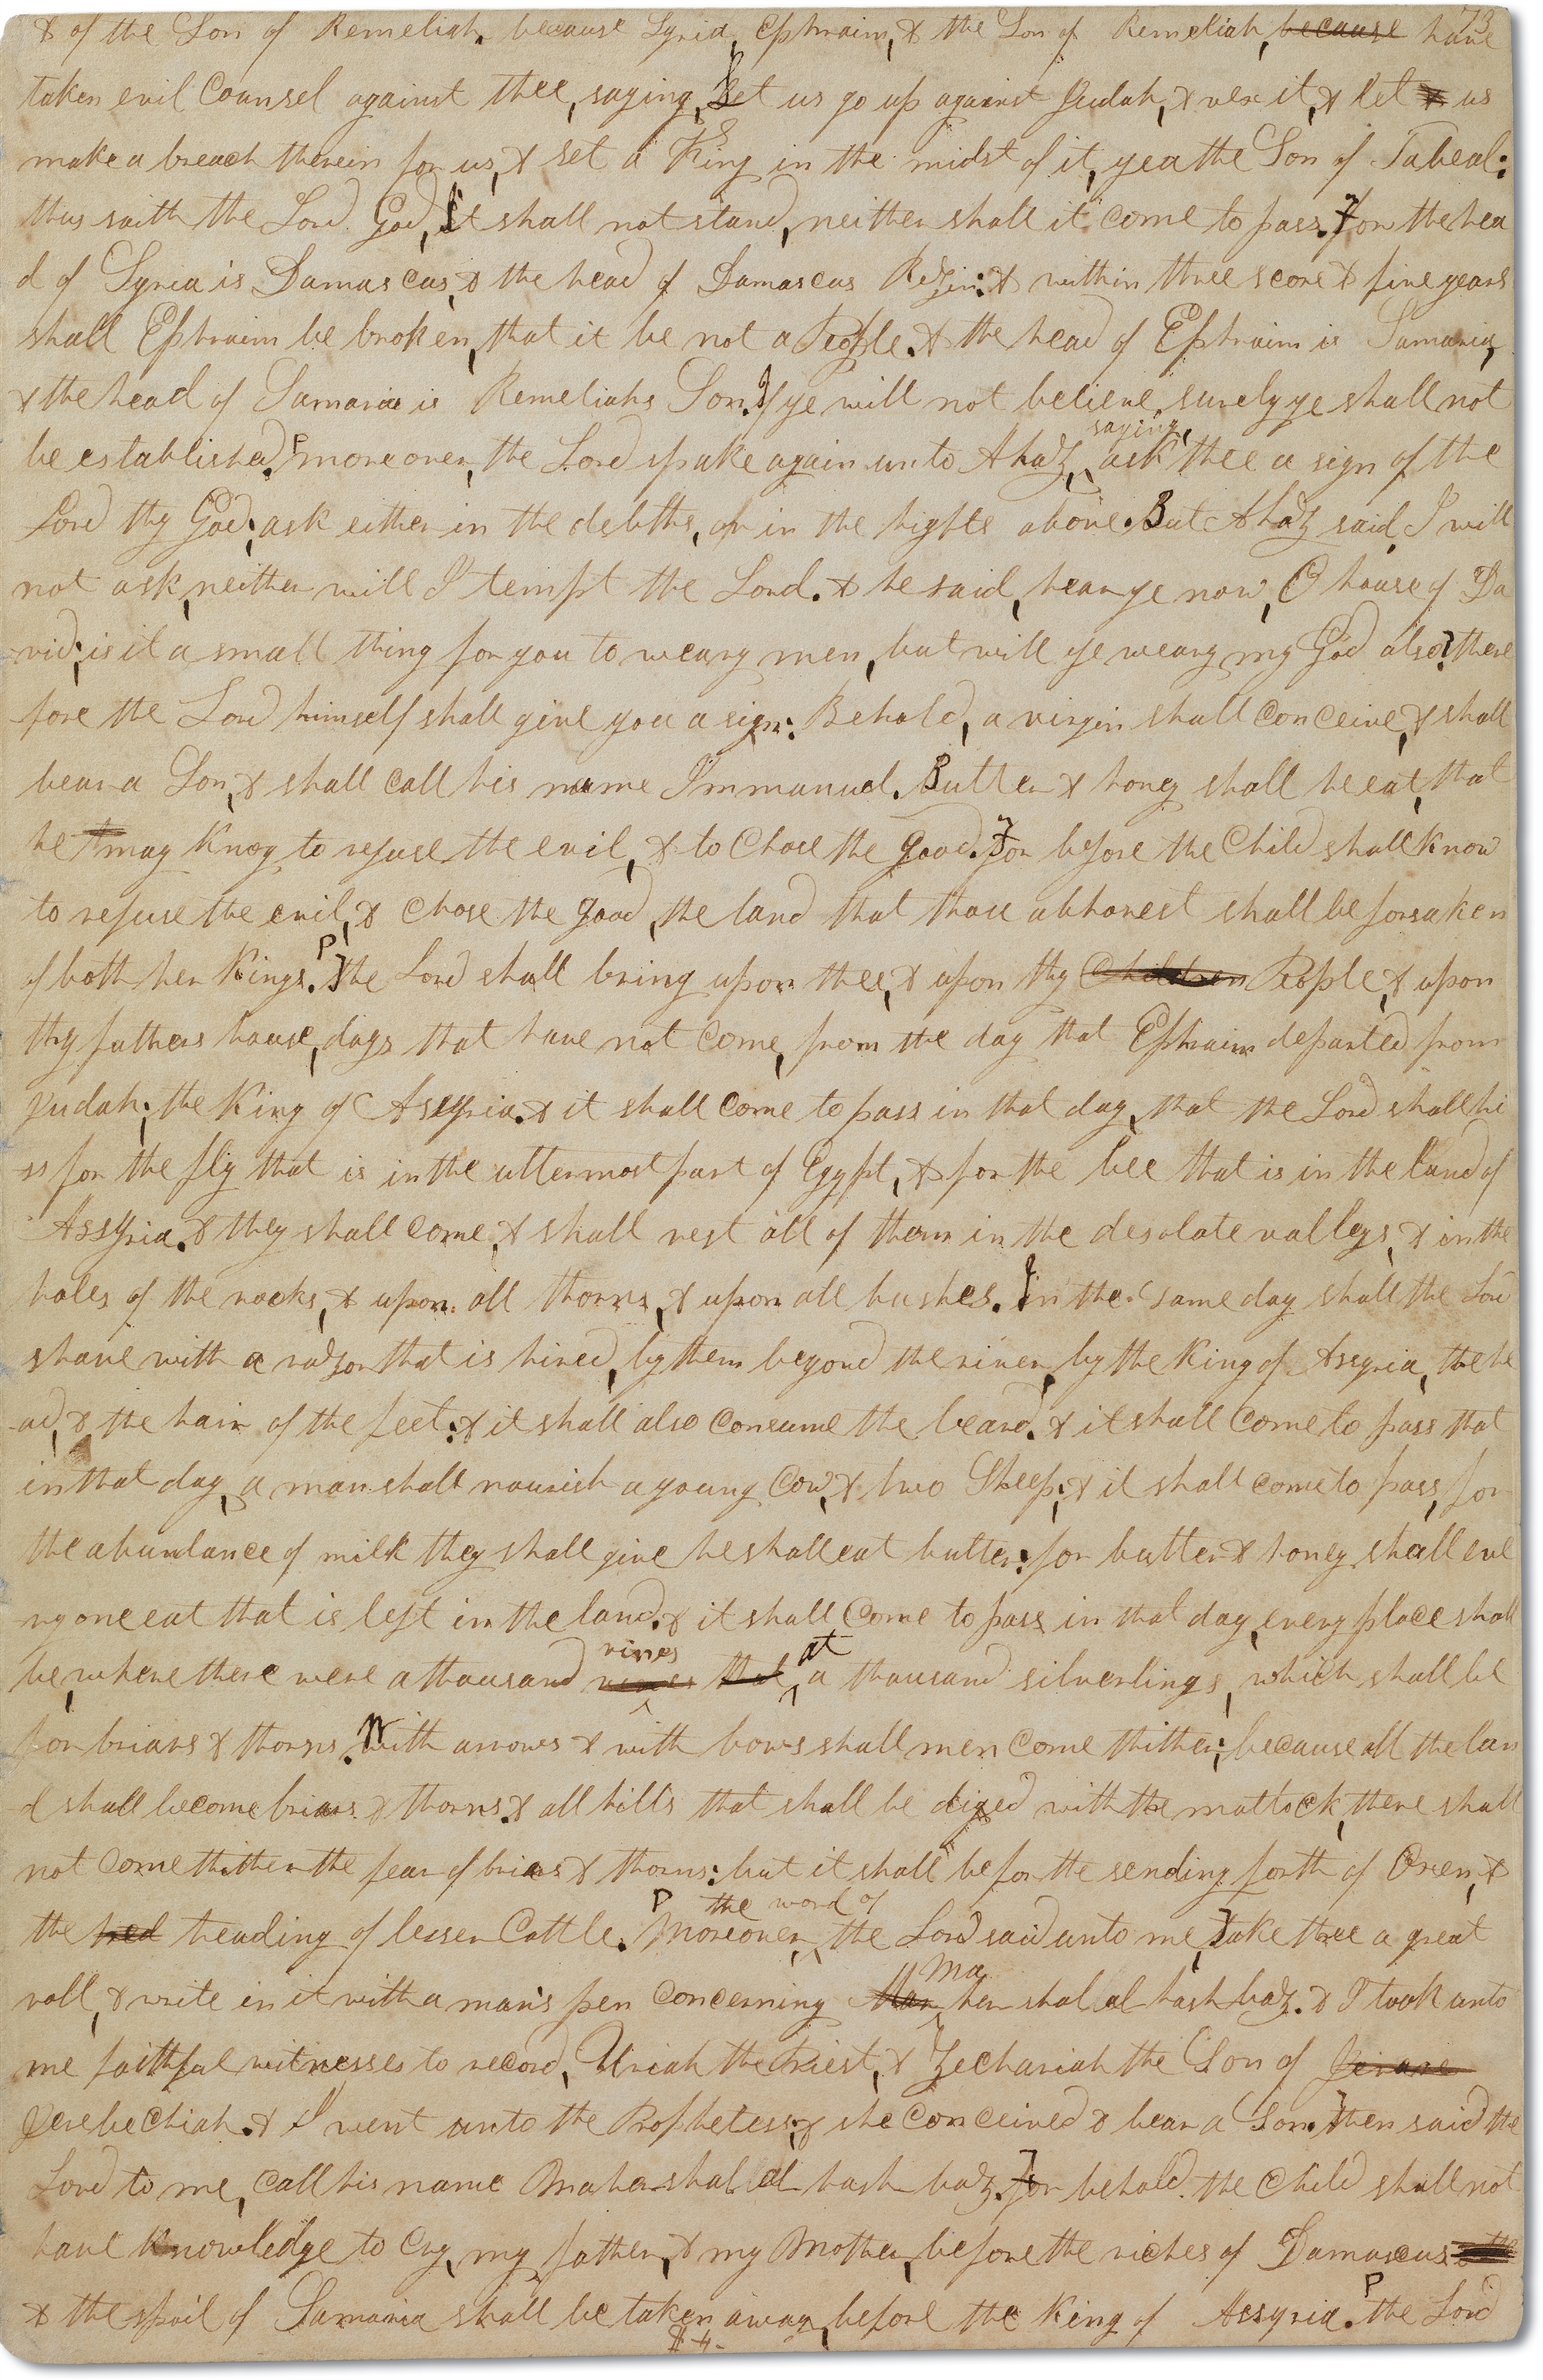 73
& of the Son of Remeliah. because Syria, Ephraim, & the Son of Remeliah, because have
taken evil Counsel against thee, saying, Let us go up against Judah, & vex it, & let us
make a breach therein for us, & set a King in the midst of it, yea the Son of Tabeal:
thus saith the Lord God, It shall not stand, neither shall it come to pass. For the hea
d of Syria is Damascus, & the head of Damascus Rezin: & within three score & five years
shall Ephraim be broken, that it be not a People. & the head of Ephraim is Samaria,
& the head of Samaria is Remeliahs Son. If ye will not believe, surely ye shall not
be established. P moreover, the Lord spake again unto Ahaz, saying, ask thee a sign of the
Lord thy God; ask either in the debths, or in the highte above. But Ahaz said, I will
not ask, neither will I tempt the Lord. & he said, hear ye now, O house of Da
vid; is it a small thing for you to weary men, but will ye weary my God also? there
fore the Lord himself shall give you a sign: Behold, a virgin shall Conceive, & shall
bear a Son, & shall Call his name Immanuel. Butter & honey shall he eat, that
he may Know to refuse the evil, & to Chose the good. For before the Child shall Know
to refuse the evil, & Chose the good, the land that thou abhorest shall be forsaken
of both her Kings. P The Lord shall bring upon thee, & upon thy Children People, & upon
thy fathers house, days that have not Come, from the day that Ephraim departed from
Judah; the King of Assyria. & it shall Come to pass in that day, that the Lord shall hi
ss for the fly that is in the uttermost part of Egypt, & for the bee that is in the land of
Assyria. & they shall Come, & shall rest all of them in the desolate valleys, & in the
holes of the rocks, & upon all thorns, & upon all bushes. In the same day shall the Lord
shave with a razor that is hired, by them beyond the river, by the King of Assyria, the he
ad, & the hair of the feet: & it shall also Consume the beard. & it shall Come to pass that
in that day, a man shall nourish a young Cow, & two Sheep; & it shall come to pass, for
the abundance of milk they shall give he shall eat butter: for butter & honey shall eve
ry one eat that is left in the land. & it shall Come to pass in that day, every place shall
be, where there were a thousand vines vines that at a thousand silverlings, which shall be
for briars & thorns. With arrows & with bows shall men Come thither; because all the lan
d shall become briars & thorns. & all hills that shall be diged with the mattock, there shall
not Come thither the fear of briars & thorns: but it shall be for the sending forth of Oxen, &
the tred treading of lesser Cattle. P Moreover, the word of the Lord said unto me, Take thee a great
roll, & write in it with a man's pen Concerning Mar Ma her shal al hash baz. & I took unto
me faithful witnesses to record, Uriah the Priest, & Zechariah the Son of
Jerebechiah. & I went unto the Prophetess; & she Conceived & bear a Son. Then said the
Lord to me, Call his name Maher shal al hash baz. For behold the Child shall not
have Knowledge to Cry, my father, & my Mother, before the riches of Damascus
& the spoil of Samaria shall be taken away, before the King of Assyria. P the Lord